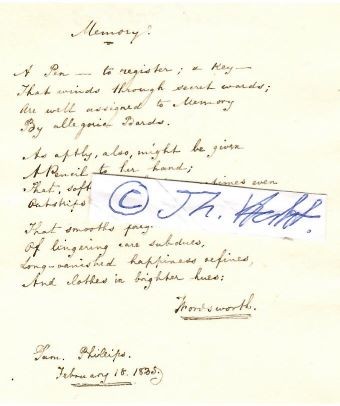 Memory.
A Pen — to register; a Key —
That winds through secret wards;
Are well assigned to Memory
By allegoric Bards.
As aptly, also, might be given
A Pencil to her hand;
That, soft times even
Outstrips
© Th.
That smooths foreg
Of lingering care subdues,
Long-vanished happiness refines,
And clothes in brighter hues;
Wordsworth.
Sam. Phillips.
February 18.